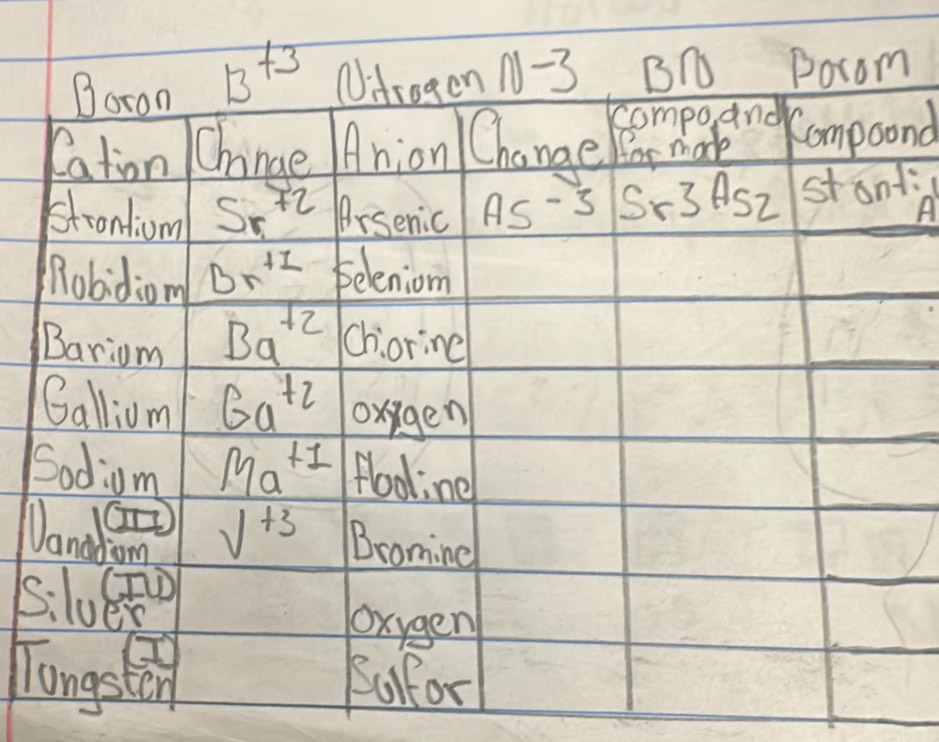 Boron B+3 Nitrogen N-3 BN Borom
Cation Change Anion Change compoand formode Compoond
Strontium Sr+2 Arsenic As-3 Sr3As2 stronti A
Robidiom Br+1 Selenium
Bariom Ba+2 Chiorine
Gallium Ga+2 oxygen
Sodium Ma+1 flooline
Vanadiom (III) V+3 Bromine
Silver (IV) oxygen
Tongsten (I) Sulfor